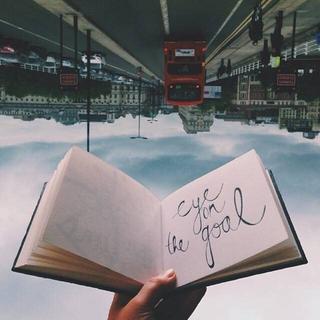 eye
on
the goal